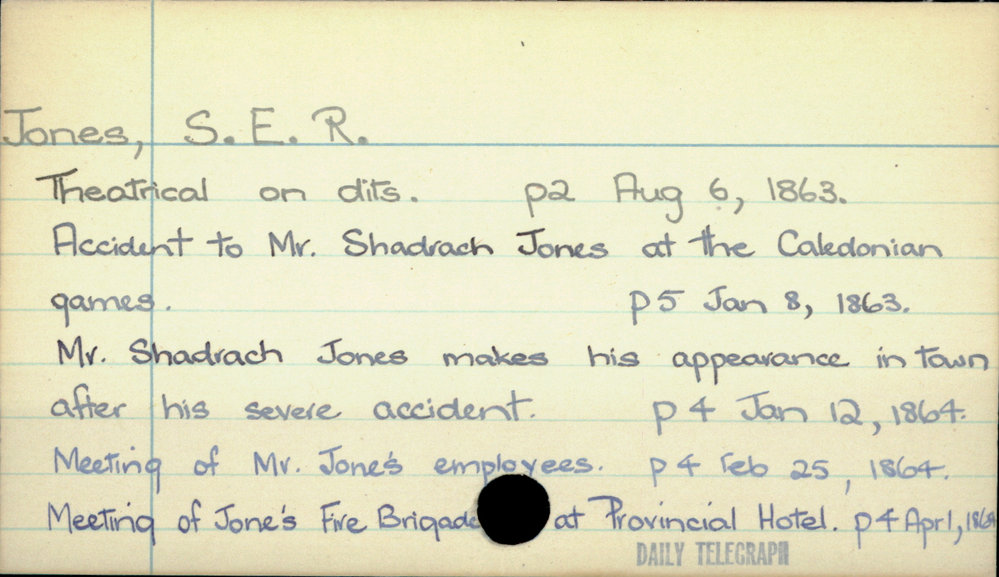 Jones, S. E. R.
Theatrical on dits. p2 Aug 6, 1863.
Accident to Mr. Shadrach Jones at the Caledonian
games. p5 Jan 8, 1863.
Mr. Shadrach Jones makes his appearance in town
after his severe accident. p4 Jan 12, 1864.
Meeting of Mr. Jone's employees. p4 Feb 25, 1864.
Meeting of Jone's Fire Brigade at Provincial Hotel. p4 Apr 1, 1864
DAILY TELEGRAPH